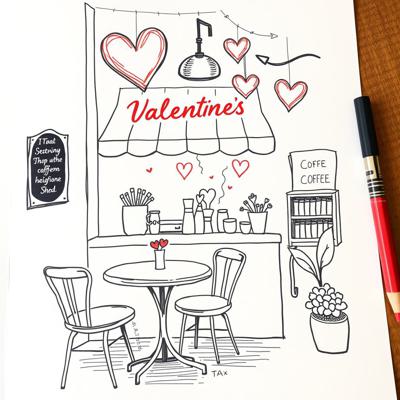 Valentine's
I Taal
Sestrning
Thop uthe
coffern
heigfione
Shed.
COFFE
COFFEE
TAX